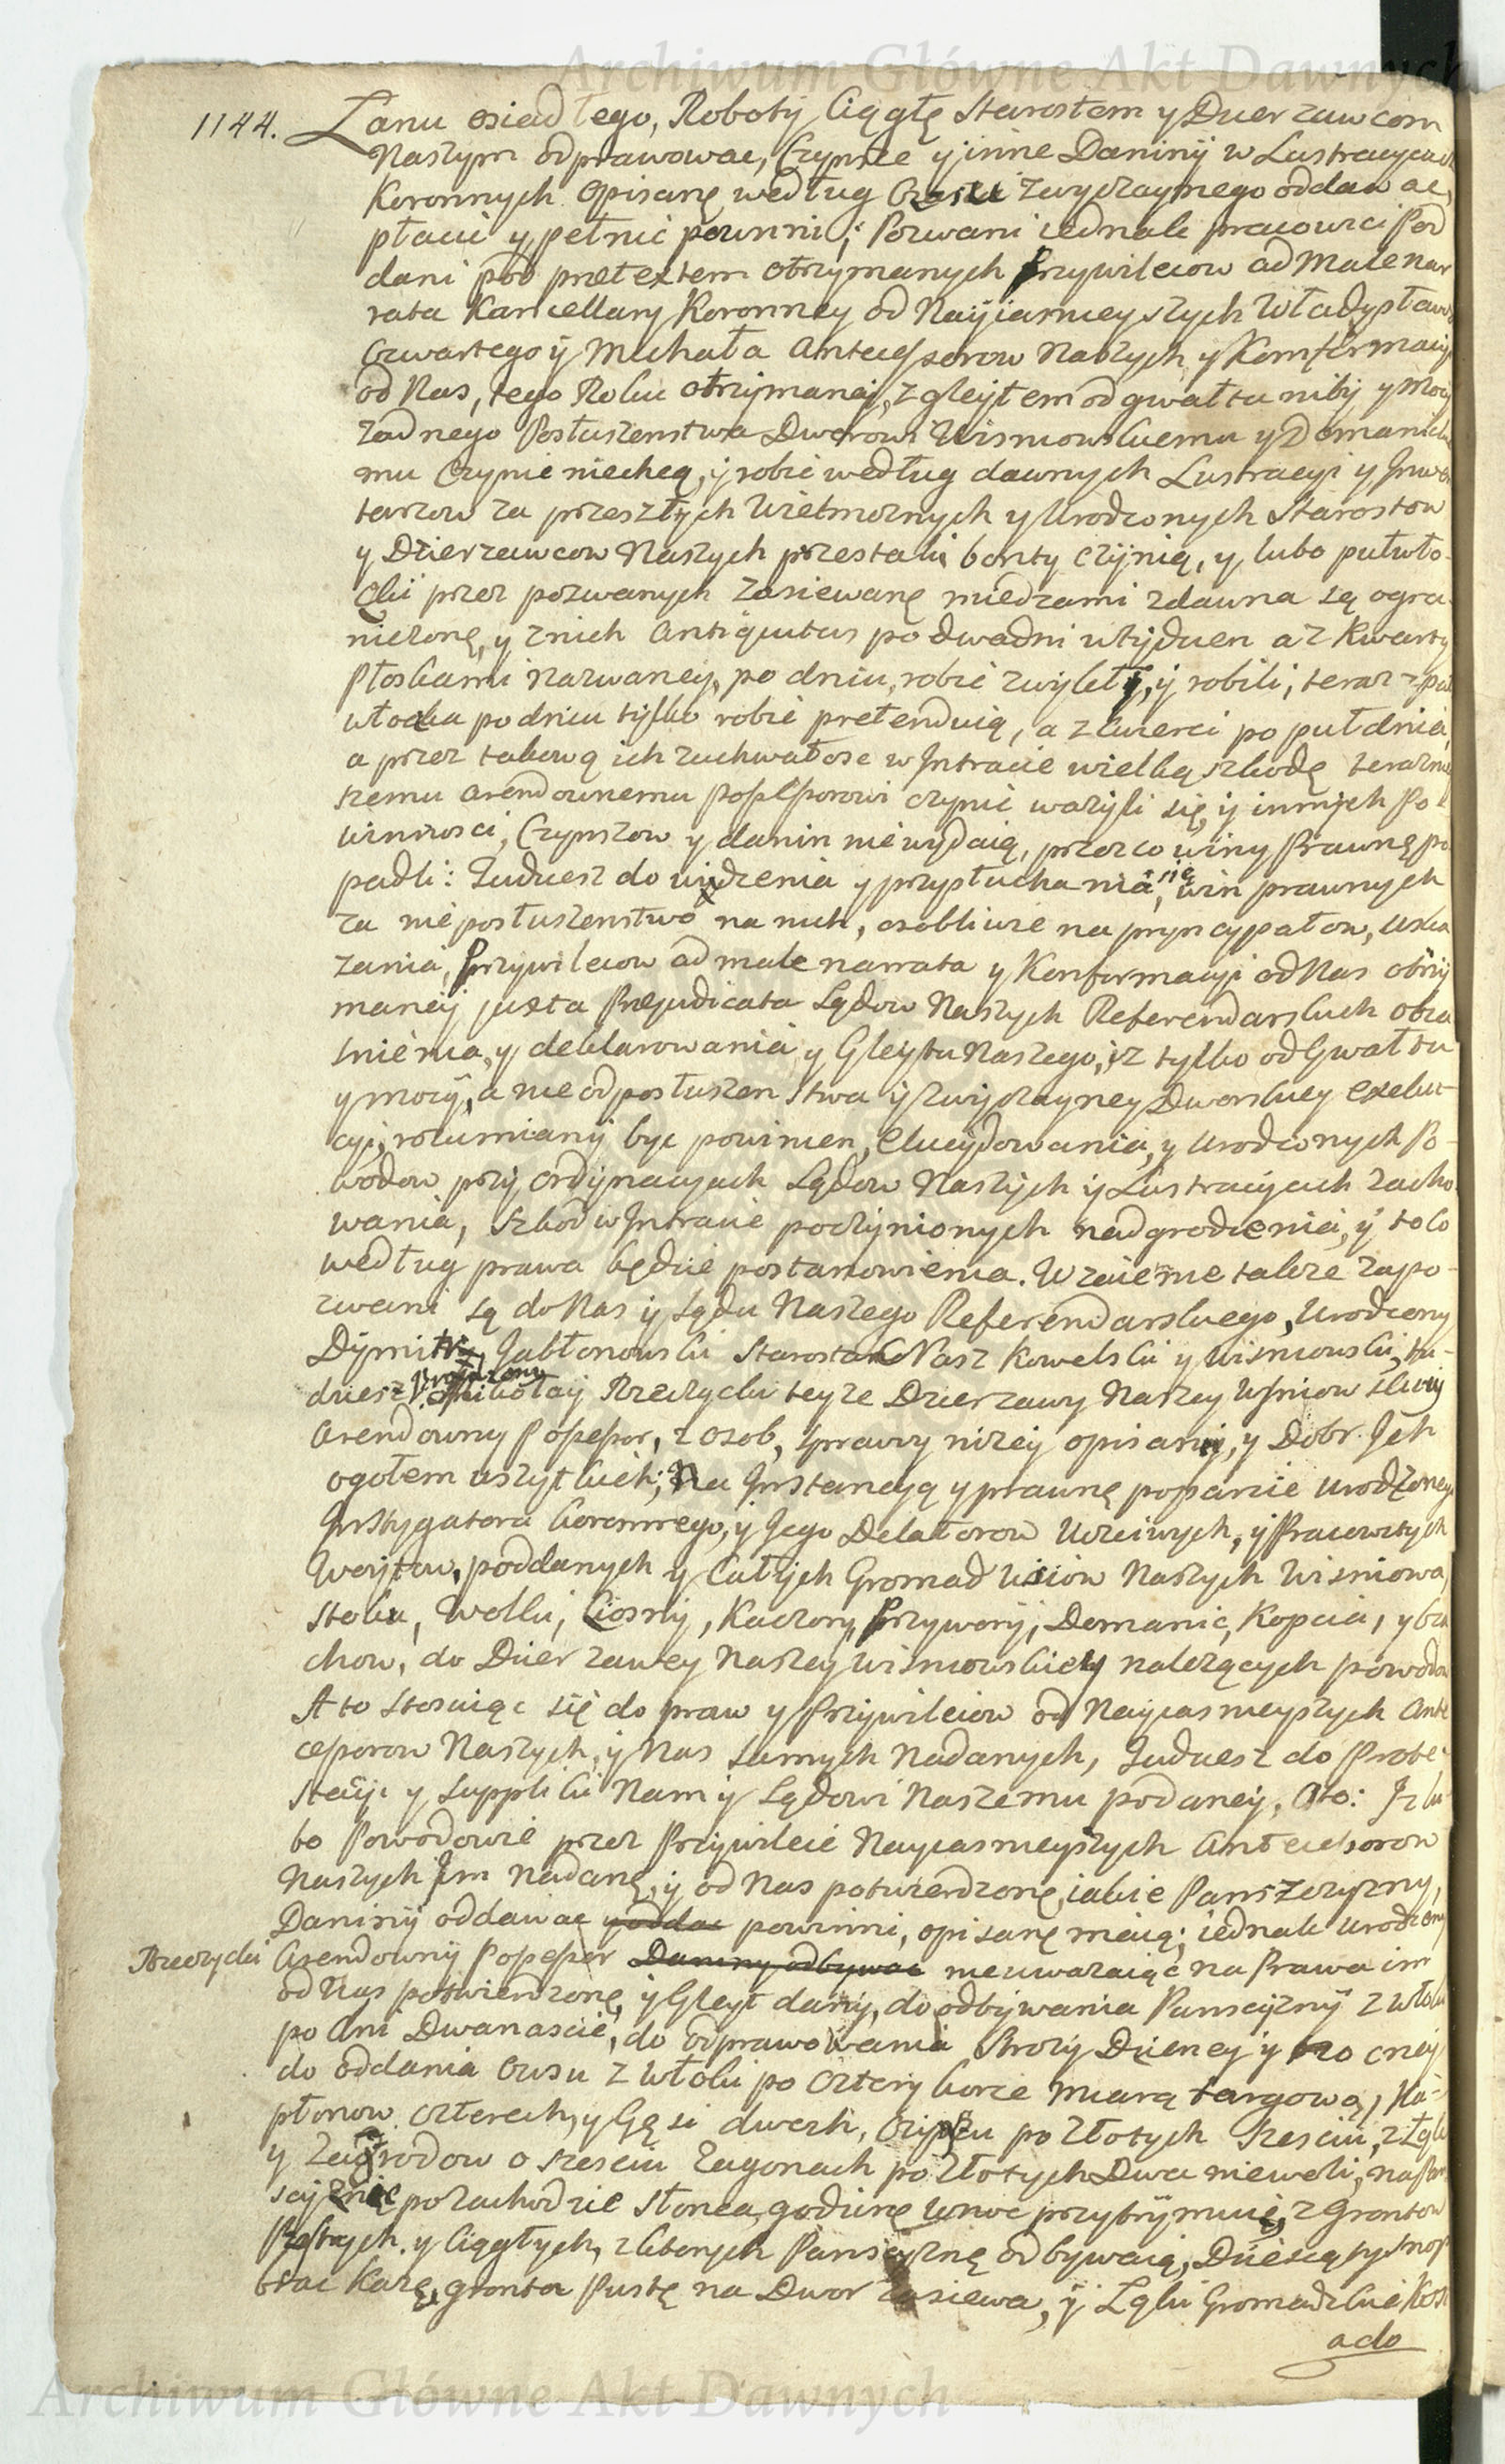 Archiwum Główne Akt Dawnych
1144. Łanu osiadłego, Roboty Ciągłę Starostom y Dzierzawcom
Naszym odprawowac, Czynsze y inne Daniny w Lustracyach
Koronnych opisanę według Czasu zwyczaynego oddawac,
płacić y pełnić powinni; Pozwani iednak pracowici Pod
dani pod pretextem otrzymanych Przywileiow ad Male nar
rata Kancellaryi Koronney od Nayiasnieyszych Władysława
Czwartego y Michała Antecessorow Naszych y Konfirmacyi
od Nas, tego Roku otrzymaney, z gleytem od gwałtu niby y Mocy
zadnego Posłuszenstwa Dworowi Wisniowskiemu y Domanick
mu czynić niechcą, y robić według dawnych Lustracyi y Inwen
tarzow za przeszłych Wielmoznych y Urodzonych Starostow
y Dzierzawcow Naszych przestali bonty czynią, y lubo pułwło-
cki przez pozwanych zasiewanę miedzami zdawna są ogra-
niczonę, y z nich Antiquitus po dwa dni w tydzien a z Kwarty
Płoskami nazwaney, po dniu, robić zwykli, y robili; teraz z puł
włocka po dniu tylko robić pretenduią, a z cwierci po puł dnia,
a przez takową ich zuchwałosc w Intracie wielką szkodę teraznie
szemu Arendownemu Possessorowi czynić wazyli się, y innych Po
winnosci, Czynszow y danin nie wydaią, przez co winy Prawnę po
padli: Tudziesz do widzenia y przysłuchania się, win prawnych
za nieposłuszenstwo na nich, osobliwie na pryncypałow, wska
zania, Przywileiow ad male narrata y Konfirmacyi od Nas otrzy
maney juxta Prejudicata Sądow Naszych Referendarskich obia
snienia, y deklarowania y Gleytu Naszego, iz tylko od Gwałtu
y mocy, a nie od posłuszenstwa y zwyczayney Dworskiey exeku-
cyi, rozumiany byc powinien, Elucydowania, y Urodzonych Po-
wodow przy Ordynacyach Sądow Naszych y Lustracyach zacho-
wania, szkod w Intracie poczynionych nadgrodzenia, y to co
według prawa będzie postanowienia. Wzaiemne takze zapo-
zwani są do Nas y Sądu Naszego Referendarskiego, Urodzony
Dymitr Jabłonowski Starosta Nasz Kowelski y Wisniowski, tu-
dziesz Urodzony Mikołay Rzeczycki teyze Dzierzawy Naszey Wisniowskiey
Arendowny Possessor, z osob, sprawy nizey opisaney, y Dobr Ich
ogołem wszytkich; Na Instancyą y prawnę poparcie Urodzonego
Instygatora Koronnego, y Jego Delatorow Uczciwych, y Pracowitych
Woytow, poddanych y Całych Gromad wsiow Naszych Wisniowa,
Stoku, Wolki, Ciosny, Kaczory, Przywory, Domanic, Kopcia, y
chow, do Dzierzawy Naszey Wisniowskiey nalezących powodow
A to stosuiąc się do praw y Przywileiow od Nayiasnieyszych Ante
cessorow Naszych, y Nas samych Nadanych, Tudziesz do Prote-
stacyi y Suppliki Nam y Sądowi Naszemu podaney. Oto: Iz lu-
bo Powodowie przez Przywileie Nayiasnieyszych Antecessorow
Naszych Im Nadanę, y od Nas potwierdzonę, iakie Panszczyzny,
Daniny oddawac y oddac powinni, opisanę maią; iednak Urodzony
Rzeczycki Arendowny Possessor Daniny odbywac nieuwazaiąc na Prawa im
od Nas potwierdzonę, y Gleyt dany, do odbywania Panscyzny z Włoki
po dni Dwanascie, do odprawowania Strozy Dzienney y no cney
do oddania Owsu z Włoki po cztery korce miarą targową, Ka-
płonow czterech, y Gęsi dwoch, Czynszu po Złotych szesciu, z Łąk
y Zagrodow o szesciu Zagonach po złotych Dwa niewoli, na Pan
scyznie po zachodzie słonca, godzinę w noc przytrzymuię, z Grontow
Pustych, y Ciągłych, z ktorych Panscyznę odbywaią, Dziesięty snop
brac karę, gronta Pustę na Dwor zasiewa, y Łąki Gromadzkie Kosi
ado
Archiwum Główne Akt Dawnych